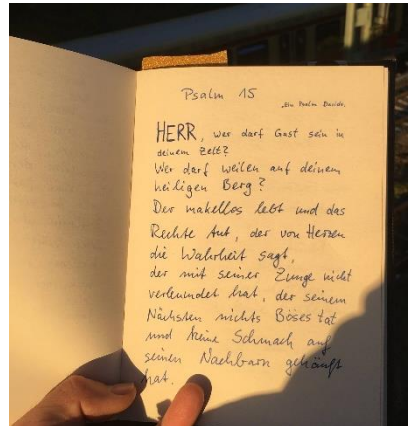 Psalm 15
Ein Psalm Davids.
HERR, wer darf Gast sein in
deinem Zelt?
Wer darf weilen auf deinem
heiligen Berg?
Der makellos lebt und das
Rechte tut, der von Herzen
die Wahrheit sagt,
der mit seiner Zunge nicht
verleumdet hat, der seinem
Nächsten nichts Böses tat
und keine Schmach auf
seinen Nachbarn gehäuft
hat.